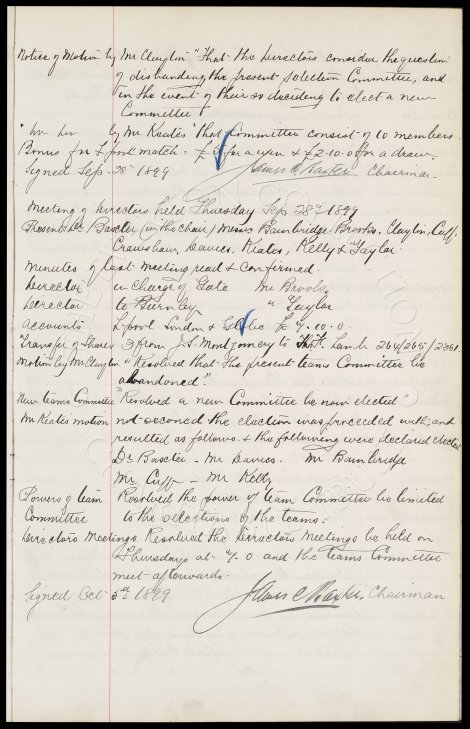 Notice of Motion by Mr Clayton "That the Directors consider the question
of disbanding the present Selection Committee, and
in the event of their so deciding to elect a new
Committee
" by Mr Keates "that Committee consist of 10 members.
Bonus for L'pool match - for a win & £2-10-0 for a draw.
Signed Sep. 28th 1899 James C Baxter Chairman.
Meeting of Directors held Thursday Sep 28th 1899
Present Dr Baxter (in the chair) Messrs Bainbridge, Brooks, Clayton, Cuff.
Crawshaw, Davies, Keates, Kelly & Taylor
Minutes of last meeting read & confirmed.
Director in charge of Gate Mr Brooks
Director to Burnley " Taylor
Accounts L'pool London & Globe £ 4.10.0.
Transfer of Shares 3 from J.S. Montgomery to Lamb 264/265/2861.
Motion by Mr Clayton "Resolved that the present teams Committee be
abandoned".
New teams Committee "Resolved a new Committee be now elected"
Mr Keates motion not seconed the election was proceeded with; and
resulted as follows. & the following were declared elected
Dr Baxter - Mr Davies. Mr Bainbridge
Mr Cuff - Mr Kelly
Powers of team Resolved the power of team Committee be limited
Committee to the selections of the teams.
Directors Meetings Resolved the Directors Meetings be held on
Thursdays at and the teams Committee
meet afterwards.
Signed Oct 5th 1899 James C Baxter, Chairman